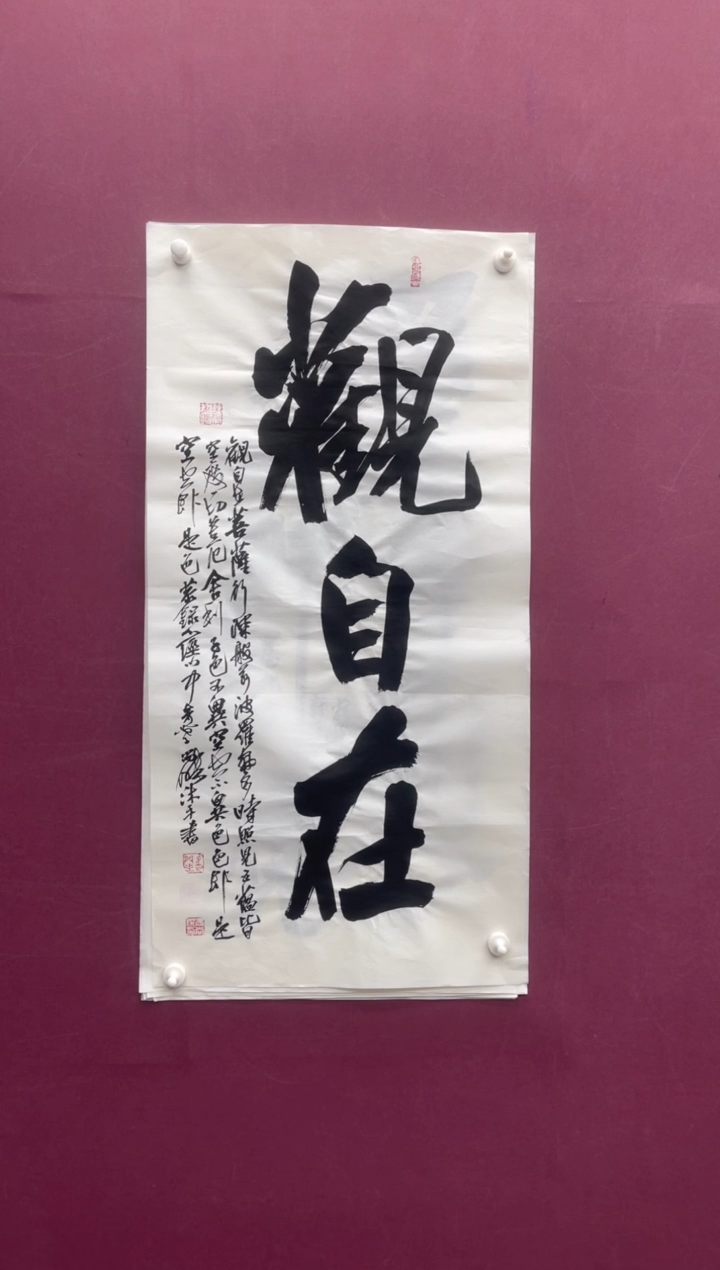 觀
自
在
觀自在菩薩行深般若波羅蜜多時照見五蘊皆
空度一切苦厄舍利子色不異空空不異色色即是
空空即是色
書